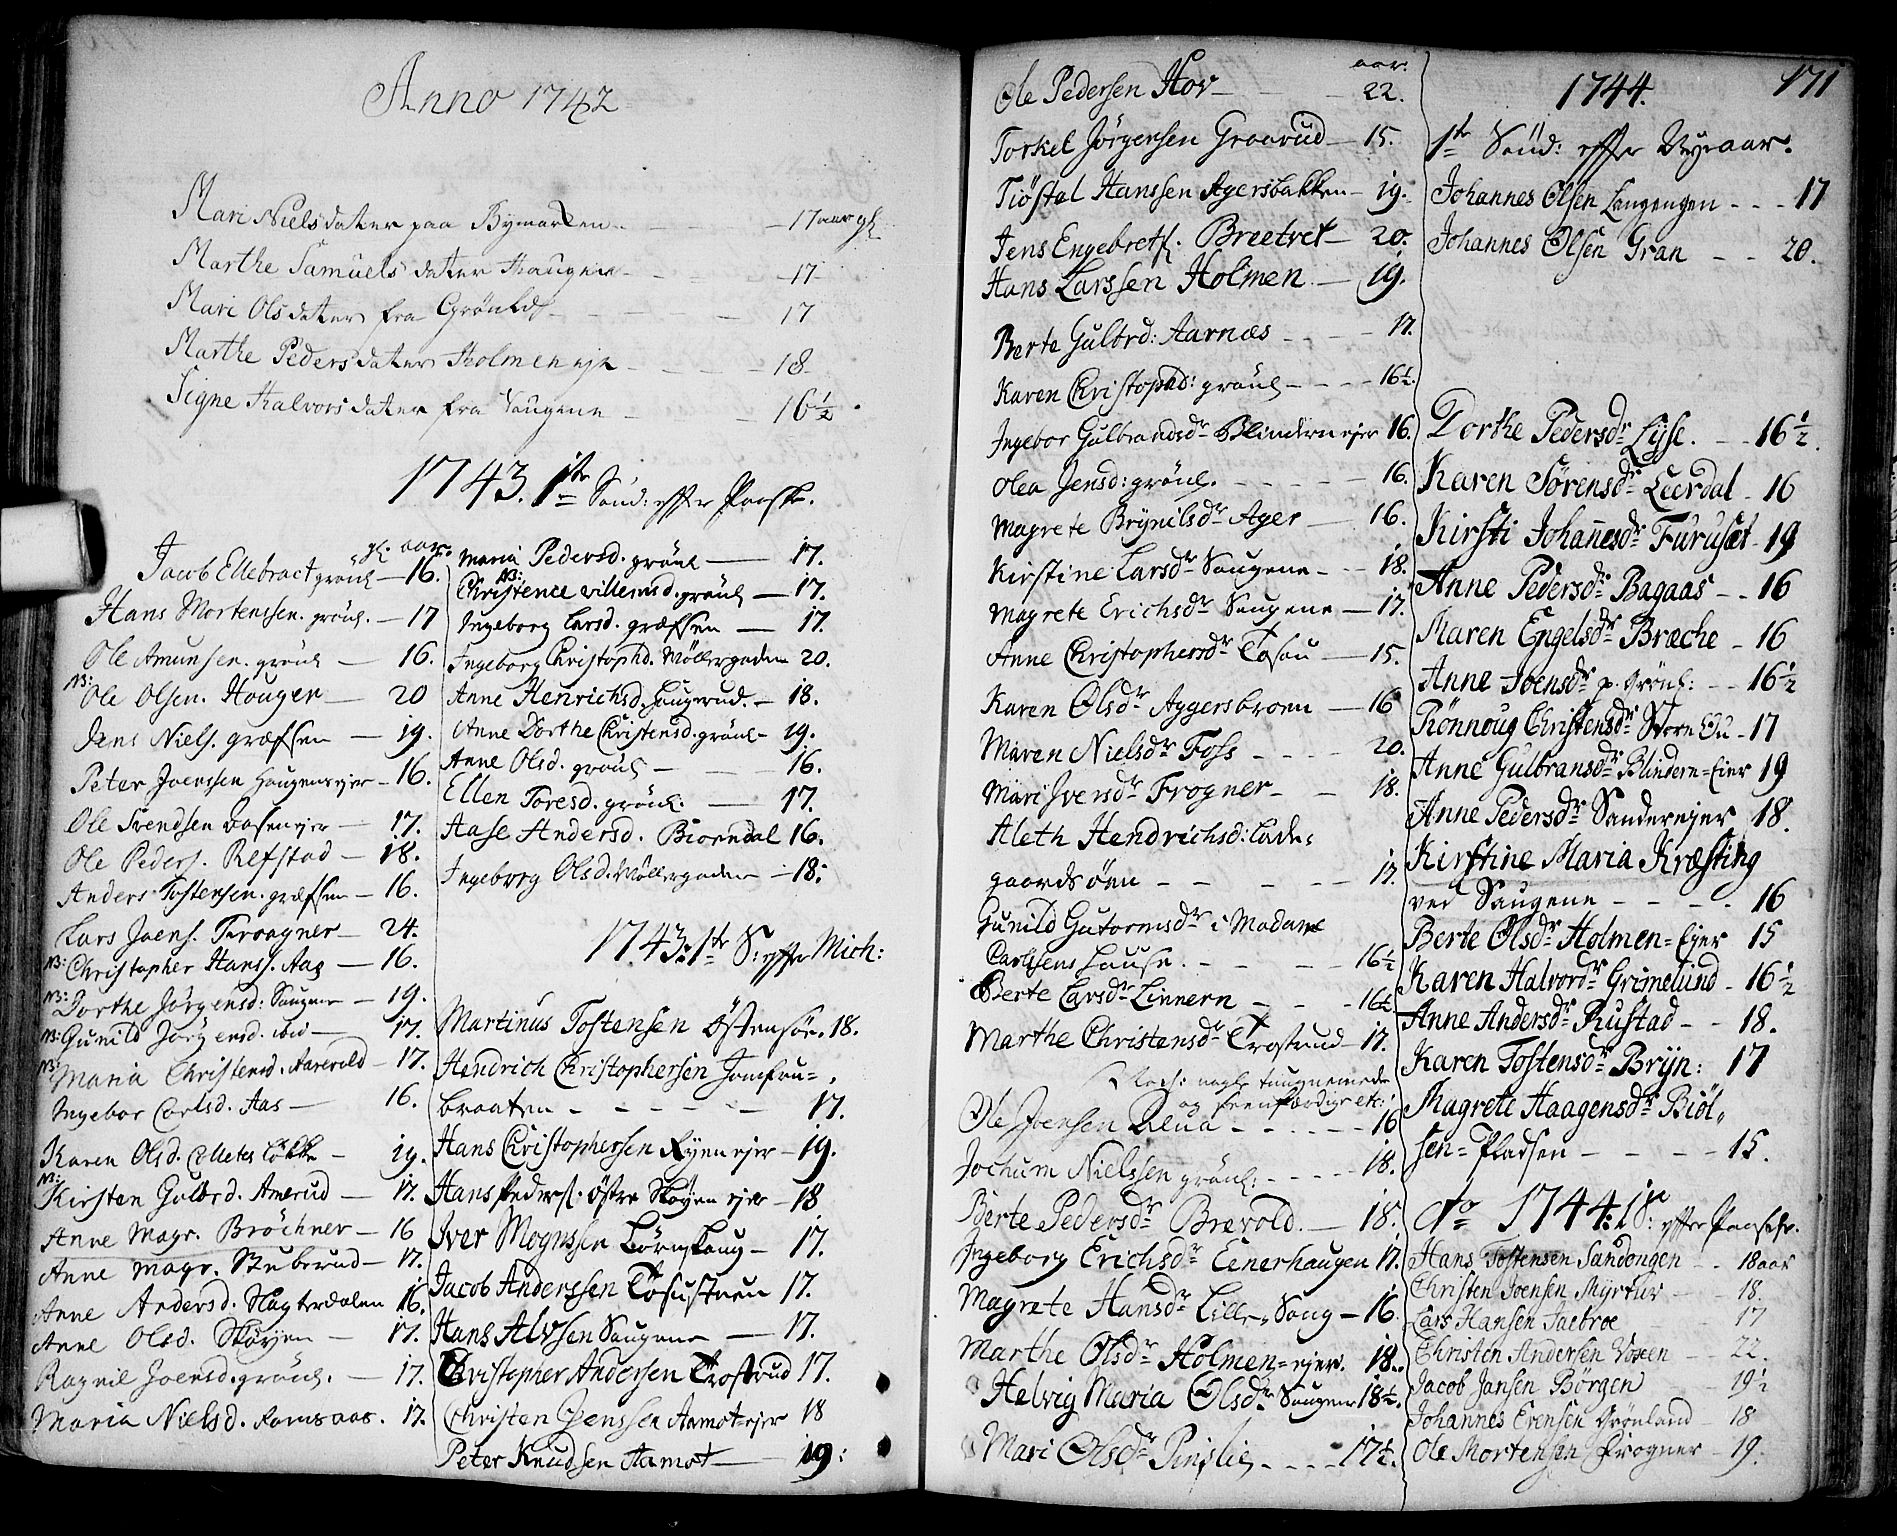 Anno 1742
Mari Nielsdater paa Bymarken - 17 aar gl
Marthe Samüels dater Haugene - 17
Mari Olsdater fra Grönld - 17
Marthe Peders dater Holmen ejr - 18
Signe Halvors dater fra Saugene - 16½
1743. 1te Sönd: effter Paaske.
gl. aar.
Jacob Ellebract grönl - 16.
Hans Mortenssen. grönl. - 17
Ole Amunsen. grönl - 16.
NB: Ole Olsen. Houger - 20
Jens Niels. græfsen - 19.
Peter Joenssen Haugens ejer - 16.
Ole Svendsen Aasen ejer - 17.
Ole Peders. Refstad - 18.
Anders Tostensen. græfsen - 16.
Lars Joens. Fraagner - 24.
NB: Christopher Hanss. Aas - 16.
NB: Dorthe Jörgensd: Saugene - 19.
NB: Gunild Jörgensd. ibid - 17.
NB: Maria Christensd. Aarvold - 17.
Ingebor Carlsd. Aas - 16.
Karen Olsd. Colletes Lökke - 19.
NB: Kirsten Gulbrd. Amerud - 17.
Anne Magr. Bröchner - 16
Anne Magr. Stuberud - 17.
Anne Andersd. Slagterdalen 16.
Anne Olsd. Skörjen - 17.
Ragnil Joensd. grönl. - 17.
Maria Nielsd. Ramsaas. - 17.
Maria Pedersd. grönl - 17.
NB: Christence Willemsd. grönl - 17.
Ingeborg Larsd. græfsen - 17.
Ingeborg Christophd. Möllergaden 20.
Anne Henrichsd. Haugerud. - 18.
Anne Dorthe Christensd. grönl - 19.
Anne Olsd. grönl - 16.
Ellen Toresd. grönl. - 17.
Aase Andersd. Bioerndal 16.
Ingeborg Olsd. Möllergaden - 18:
1743: 1te S: effter Mich:
Martinus Tostensen Östensöe. 18.
Hendrich Christophersen Jomfru=
braaten - 17.
Hans Christophersen Ryen ejer - 19.
Hans Peders. Östre Skøyen ejer - 18
Iver Mognssen Börnskaug - 17.
Jacob Anderssen Tösustuen 17.
Hans Alvsen Saugene - 17.
Christopher Andersen Trostrud 17.
Christen Jenssen Aamot=ejer 18
Peter Knudsen Aamot - 19:
aar.
Ole Pedersen Hov - 22.
Torkel Jörgensen Graavüd - 15.
Tiöstal Hanssen Agersbakken - 19.
Jens Engebrets. Breetvet - 20.
Hans Larssen Holmen. - 19.
Berte Gulbrd: Aarnæs - 17.
Karen Christophd: grönl - 16½.
Ingebor Gulbrandsdr Blindern ejer 16.
Olea Jensd: grönl. - 16.
Magrete Brynilsdr Ager - 16.
Kirstine Larsdr Saugene - 18.
Magrete Erichsdr Saugene - 17.
Anne Christophersdr Tosau - 15.
Karen Olsdr Aggersbroen - 16
Maren Nielsdr Foss - 20.
Mari Iversdr Frogner - 18.
Aleth Hendrichsd: Lade=
gaardsöen - 17.
Gunild Gutormsdr i Madame
Carlsens Hause. - 16½
Berte Larsdr Linnern - 16½
Marthe Christensdr Trostrud - 17.
Ole Joensen - 16
Jochum Nielssen grönl: - 18.
Berte Pedersdr Brevold. - 18.
Ingeborg Erichsdr Eenerhaugen 17.
Magrete Hansdr Lille=Saug - 16
Marthe Olsdr Holmen=ejer. 18.
Helvig Maria Olsdr Saugene 18½.
Mari Olsdr Pinslie - 17½.
171
1744.
1te Sönd: effter Nyeaar.
Johannes Olsen Langengen - 17
Johannes Olsen Gran - 20.
Dorthe Pedersdr Lyse. - 16½.
Karen Sörensdr Leerdal - 16
Kirsti Johannesdr Furuset - 19
Anne Pedersdr Bagaas - 16
Maren Engelsdr Bræche - 16
Anne Joensdr p. Grönl: - 16½
Rönnoug Christensdr - 17
Anne Gulbransdr Blindern=Ejer 19
Anne Pedersdr Sander ejer 18.
Kirstine Maria Kræsting
ved Saugene - 16
Berte Olsdr Holmen=Ejer 15
Karen Halvordr Grimelund - 16½
Anne Andersdr Rustad - 18.
Karen Tostensdr Bryn: 17
Magrete Haagensdr Biöl=
sen=Pladsen - 15.
Ao 1744: 1 S: effter Paaske.
Hans Tostensen Sandongen - 18 aar
Christen Joensen Myrtur - 18.
Lars Hansen Jaebroe - 17
Christen Andersen Voxen - 22.
Jacob Jansen Borgen - 19½
Johannes Evensen Grönland - 18
Ole Mortensen Frogner - 19.